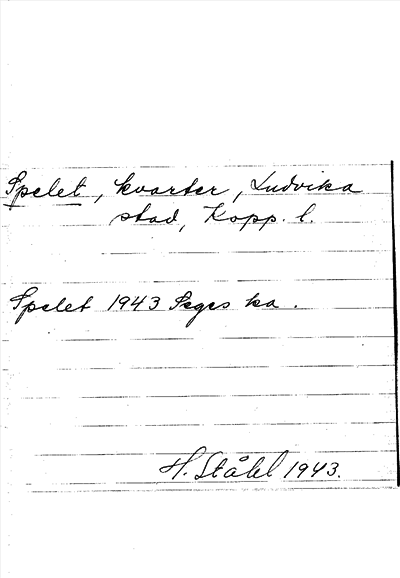 Spelet, kvarter, Ludvika
stad, Kopp. l.
Spelet 1943 ka.
H. Ståhl 1943.